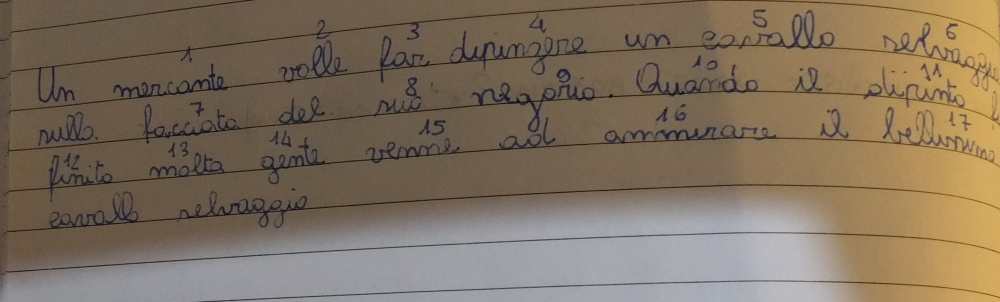 1 2 3 4 5 6
Un mercante volle far dipingere un cavallo selvaggio
7 8 9 10 11
sulla facciata del suo negozio. Quando il dipinto
12 13 14 15 16 17
finito molta gente venne ad ammirare il bellissimo
cavallo selvaggio